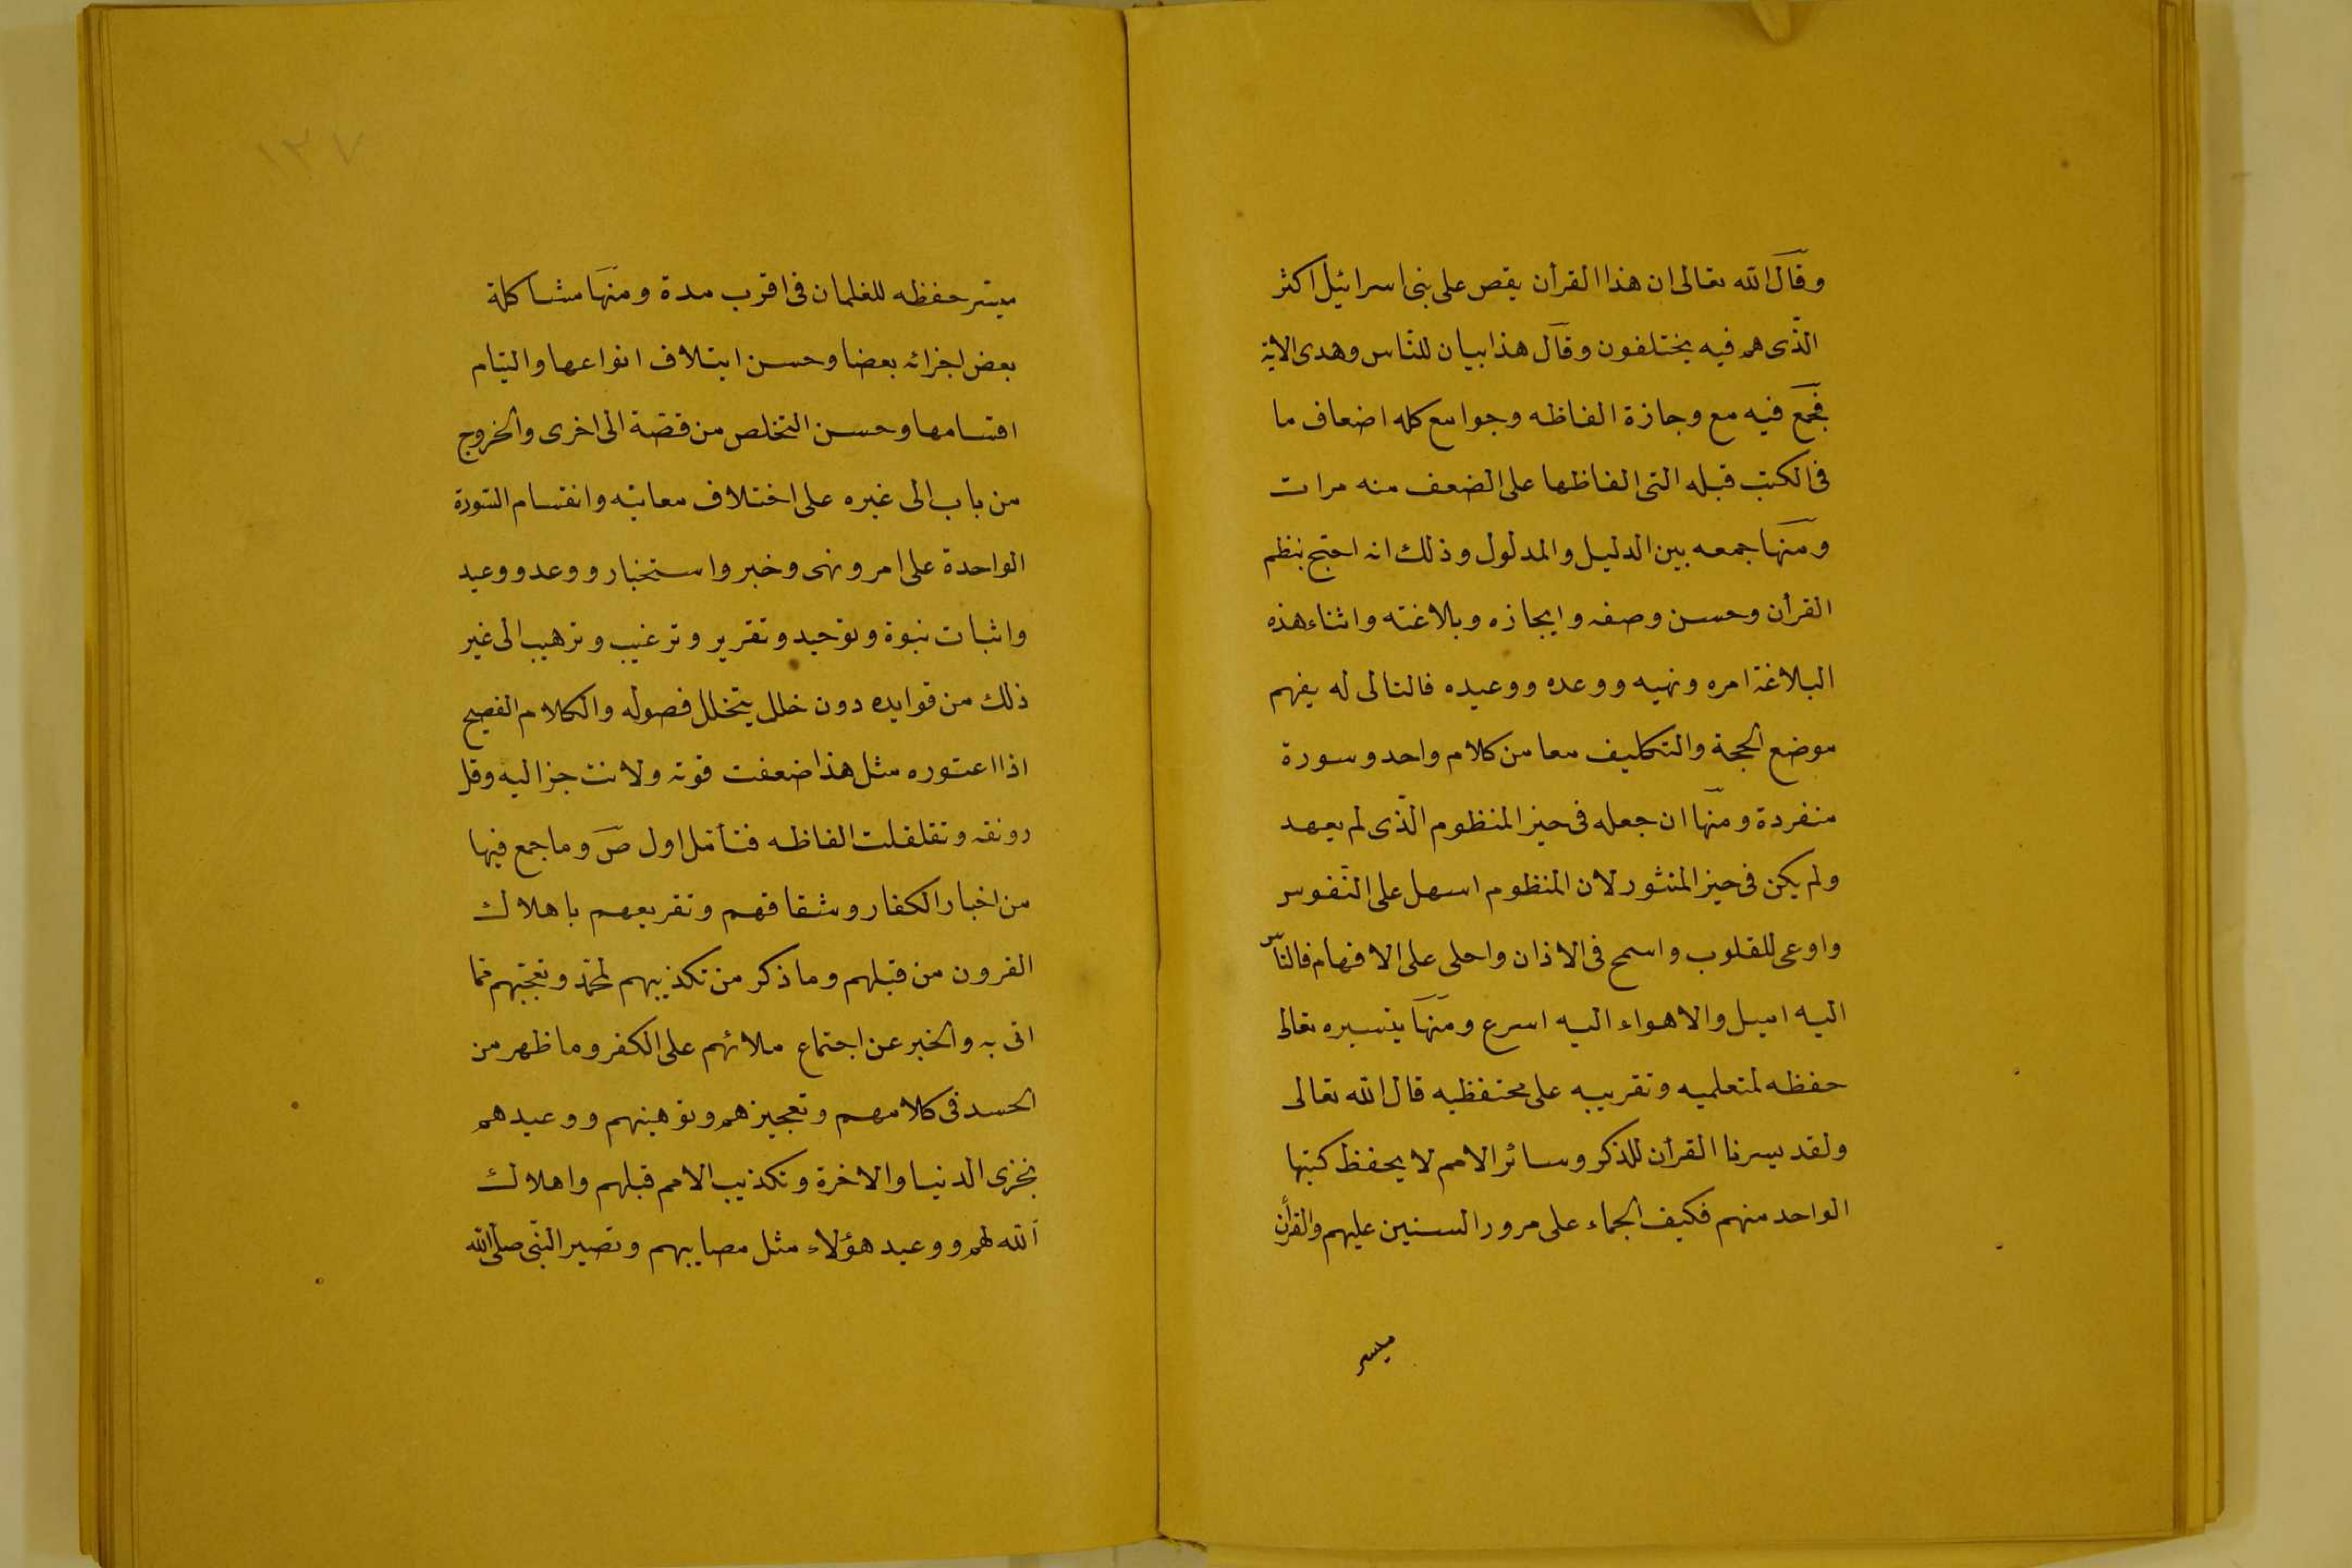 وقال الله تعالى ان هذا القرأن يقص على بنى اسرائيل اكثر
الذى هم فيه يختلفون وقال هذا بيان للناس وهدى الاية
فجمع فيه مع وجازة الفاظه وجوامع كلمه اضعاف ما
فى الكتب قبله التى الفاظها على الضعف منه مرات
ومنها جمعه بين الدليل والمدلول وذلك انه احتج بنظم
القرأن وحسن وصفه وايجازه وبلاغته واثناء هذه
البلاغة امره ونهيه ووعده ووعيده فالتالى له يفهم
موضع الحجة والتكليف معا من كلام واحد وسورة
منفردة ومنها ان جعله فى حيز المنظوم الذى لم يعهد
ولم يكن فى حيز المنثور لان المنظوم اسهل على النفوس
واوعى للقلوب واسمح فى الاذان واحلى على الافهام فالناس
اليه اميل والاهواء اليه اسرع ومنها يتسيره تعالى
حفظه لمتعلميه وتقريبه على محتفظيه قال الله تعالى
ولقد يسرنا القرأن للذكر وسائر الامم لا يحفظ كتبها
الواحد منهم فكيف الجماء على مرور السنين عليهم والقرأن
ميسر
١٣٧
ميسر حفظه للغلمان فى اقرب مدة ومنها مشاكلة
بعض اجزائه بعضا وحسن ايتلاف انواعها والتيام
اقسامها وحسن التخلص من قصة الى اخرى والخروج
من باب الى غيره على اختلاف معانيه وانقسام السورة
الواحدة على امر ونهى وخبر واستخبار ووعد ووعيد
واثبات نبوة وتوحيد وتقرير وترغيب وترهيب الى غير
ذلك من فوايده دون خلل يتخلل فصوله والكلام الفصيح
اذا اعتوره مثل هذا ضعفت قوته ولانت جزاليه وقل
رونقه وتقلقلت الفاظه فتأمل اول ص وما جمع فيها
من اخبار الكفار وشقاقهم وتقريعهم باهلاك
القرون من قبلهم وما ذكر من تكذيبهم لمحمد وتعجبهم مما
اتى به والخبر عن اجتماع ملائهم على الكفر وما ظهر من
الحسد فى كلامهم وتعجيزهم وتوهينهم ووعيدهم
بخزى الدنيا والاخرة وتكذيب الامم قبلهم واهلاك
الله لهم ووعيد هؤلاء مثل مصايبهم وتصير النبى صلى الله